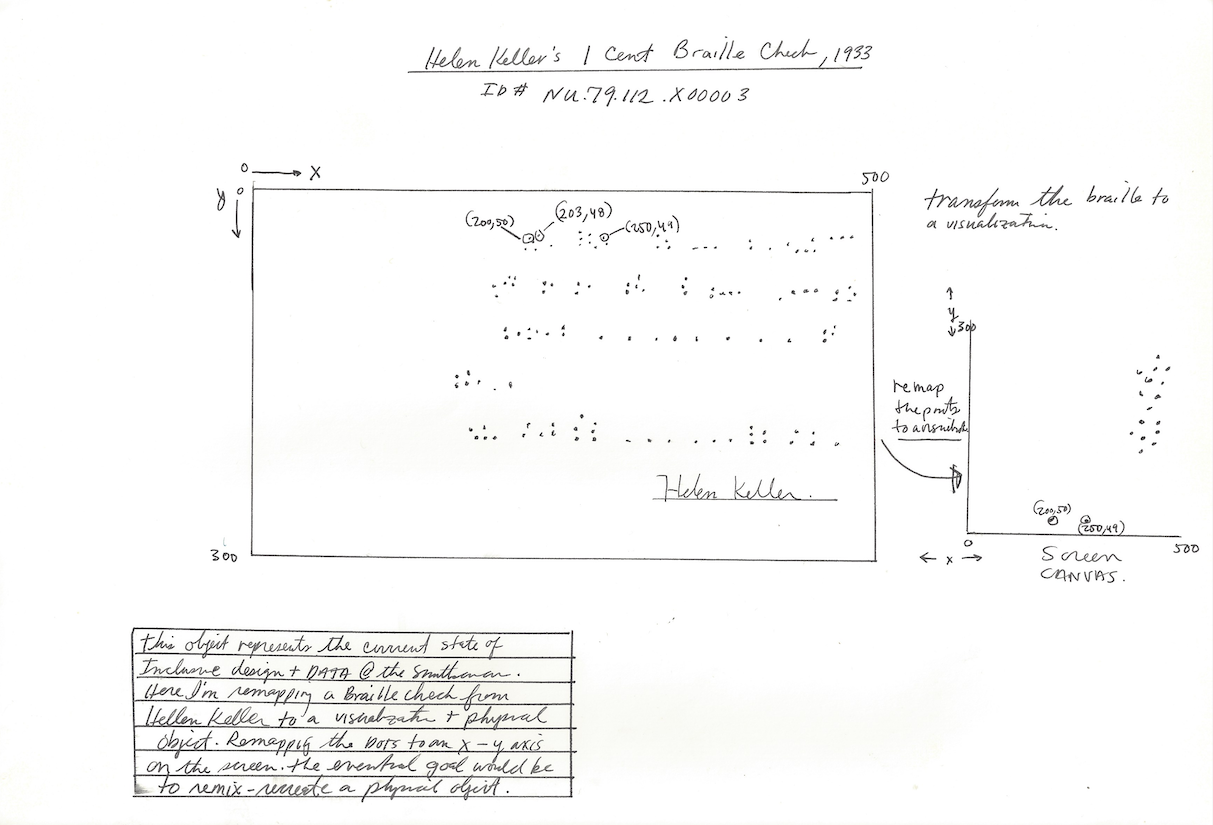 Helen Keller's 1 Cent Braille Check, 1933
ID# NU.79.112.X00003
0 → X
500
y 0
(200,50)
(203,48)
(250,49)
transform the braille to
a visualization.
↑
y
↓ 300
remap
the points
to a visualiz
Helen Keller.
300
(200,50)
(250,49)
0
500
← x →
Screen
CANVAS.
this object represents the current state of
Inclusive design + DATA @ the Smithsonian.
Here I'm remapping a Braille check from
Hellen Keller to a visualization + physical
object. Remapping the DOTS to an X-y axis
on the screen. the eventual goal would be
to remix-recreate a physical object.